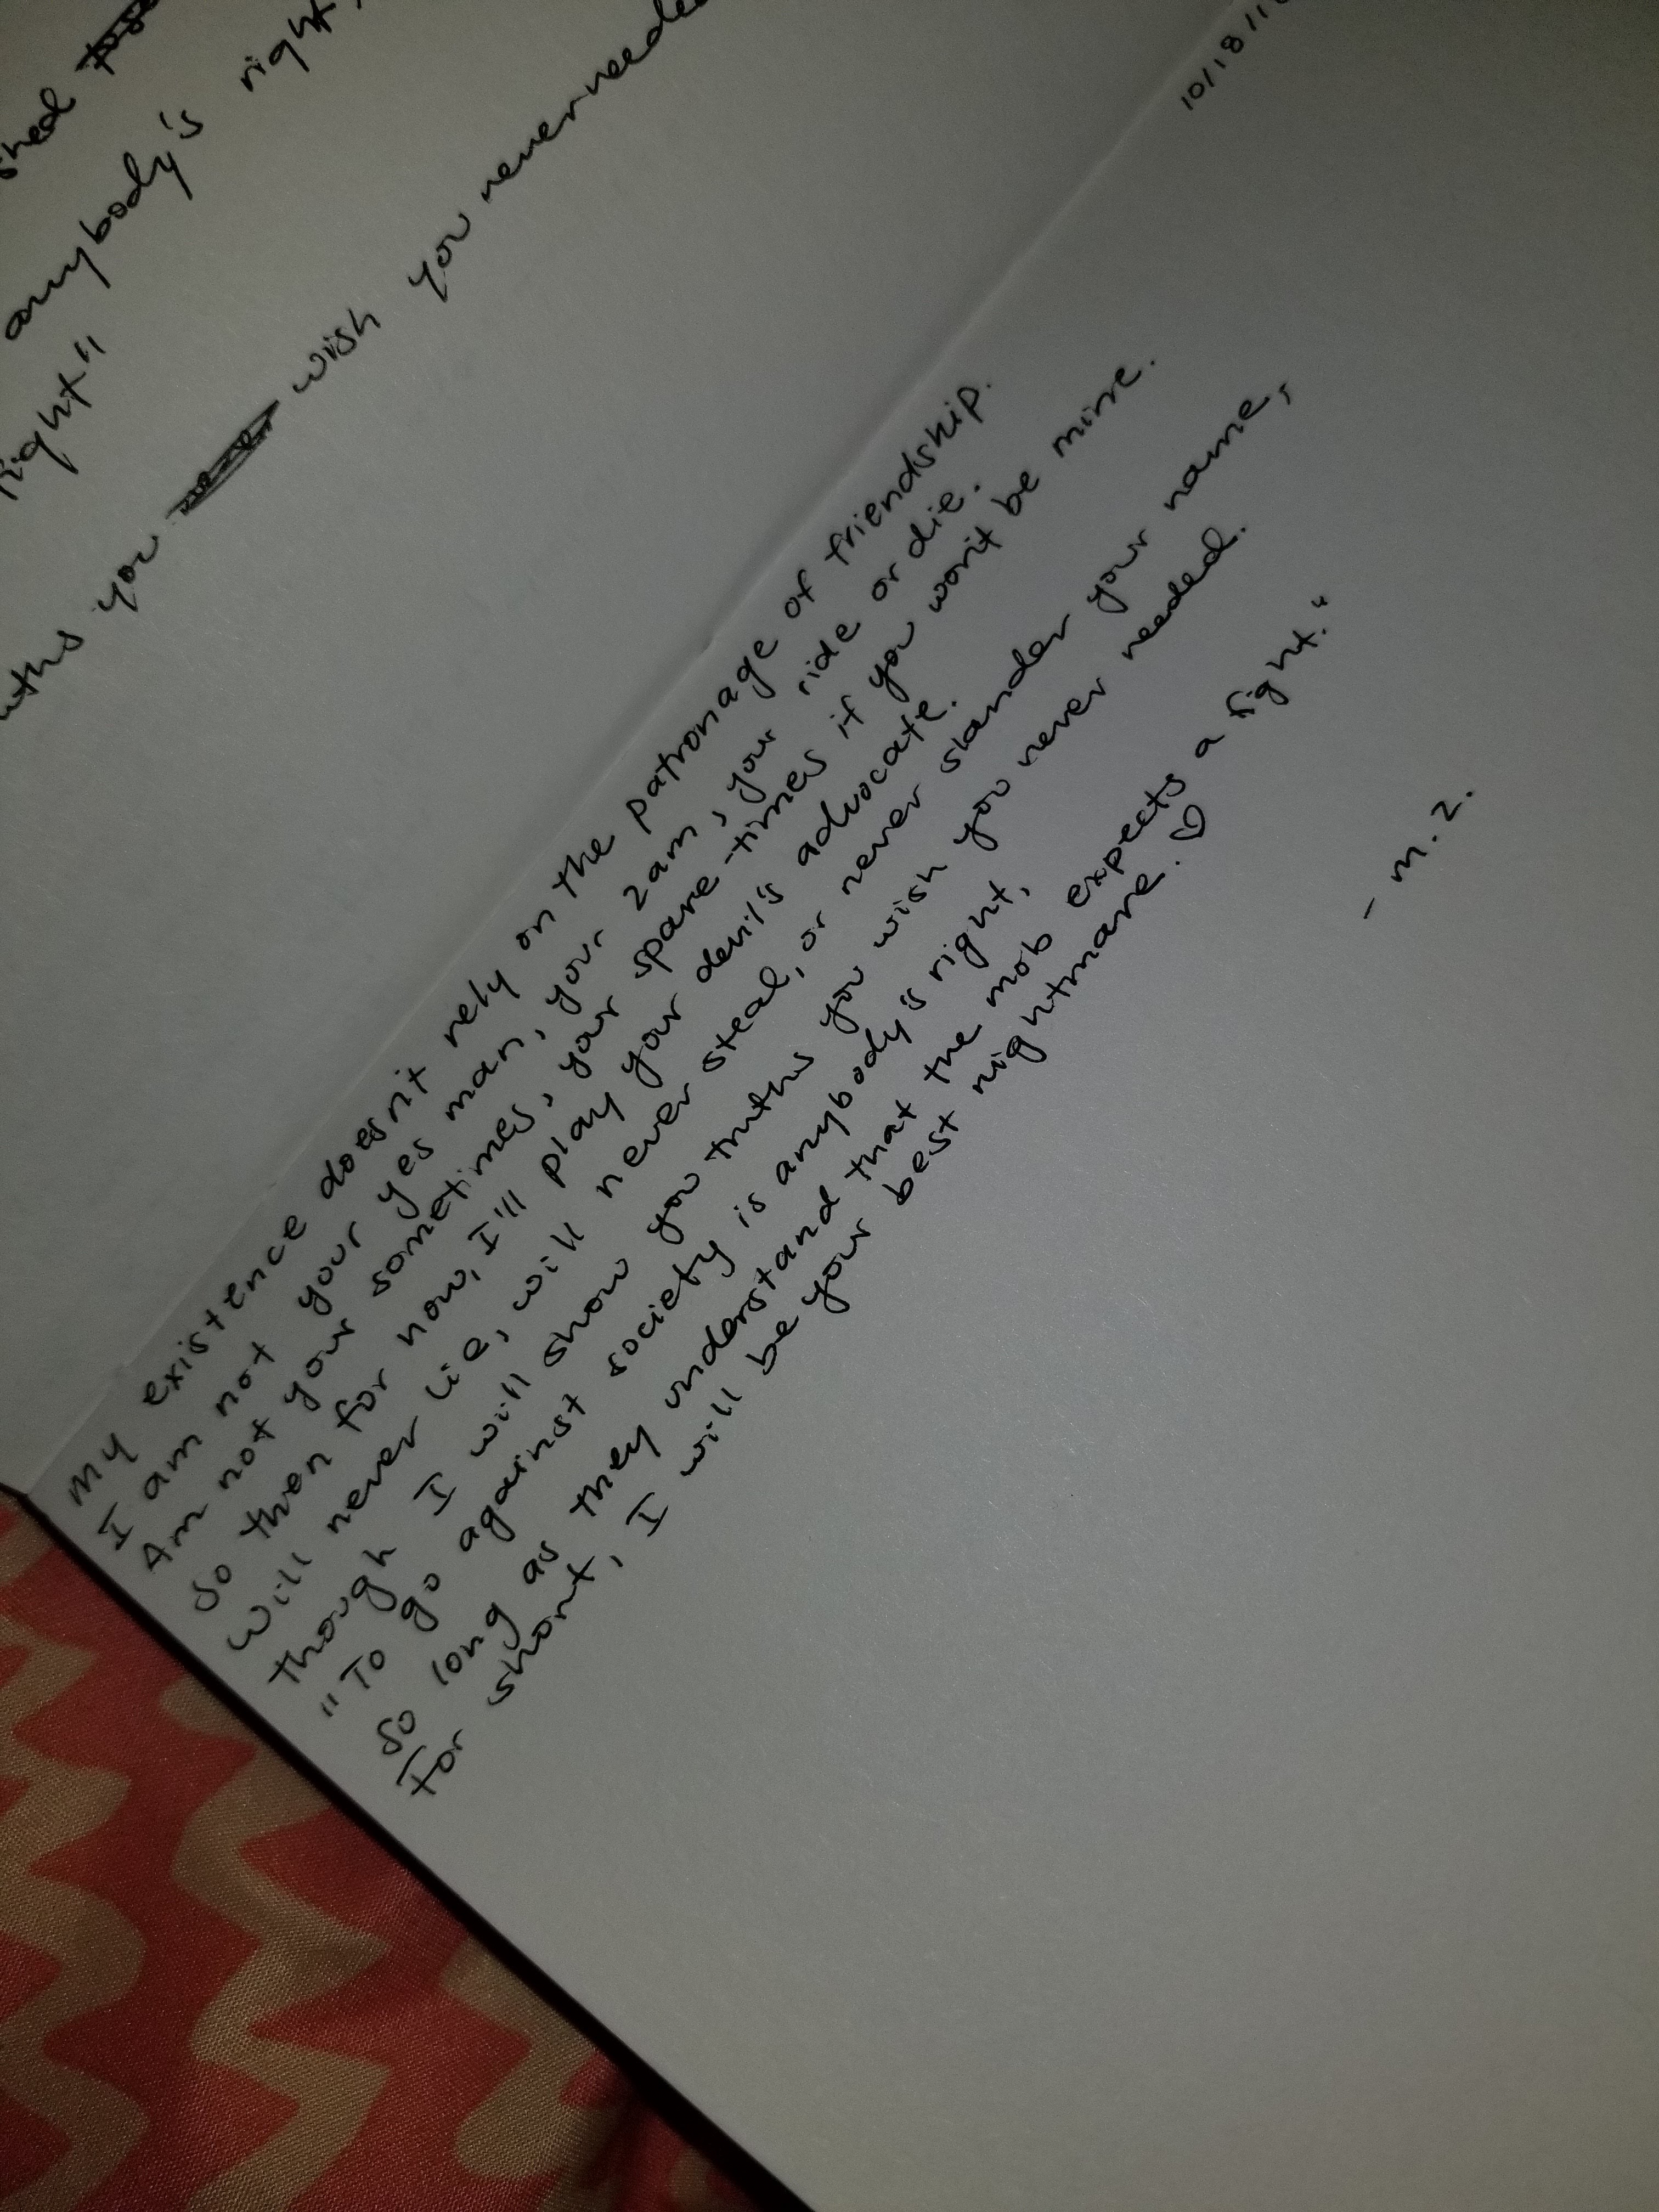 anybody's right,
right"
you wish you never
10/18/1
My existence doesn't rely on the patronage of friendship.
I am not your yes man, your 2am, your ride or die.
Am not your sometimes, your spare-times if you won't be mine.
So then for now, I'll play your devil's advocate.
Will never lie, will never steal, or never slander your name,
though I will show you truths you wish you never needed.
"To go against society is anybody's right,
So long as they understand that the mob expects a fight."
For short, I will be your best nightmare. ♡
- m.z.